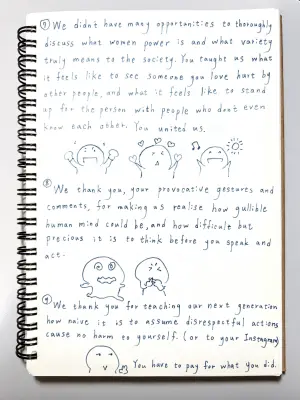 ⑦ We didn't have many opportunities to thoroughly
discuss what women power is and what variety
truly means to the society. You taught us what
it feels like to see someone you love hurt by
other people, and what it feels like to stand
up for the person with people who don't even
know each other. You united us.
⑧ We thank you, your provocative gestures and
comments, for making us realise how gullible
human mind could be, and how difficult but
precious it is to think before you speak and
act.
⑨ We thank you for teaching our next generation
how naive it is to assume disrespectful actions
cause no harm to yourself. (or to your Instagram)
You have to pay for what you did.